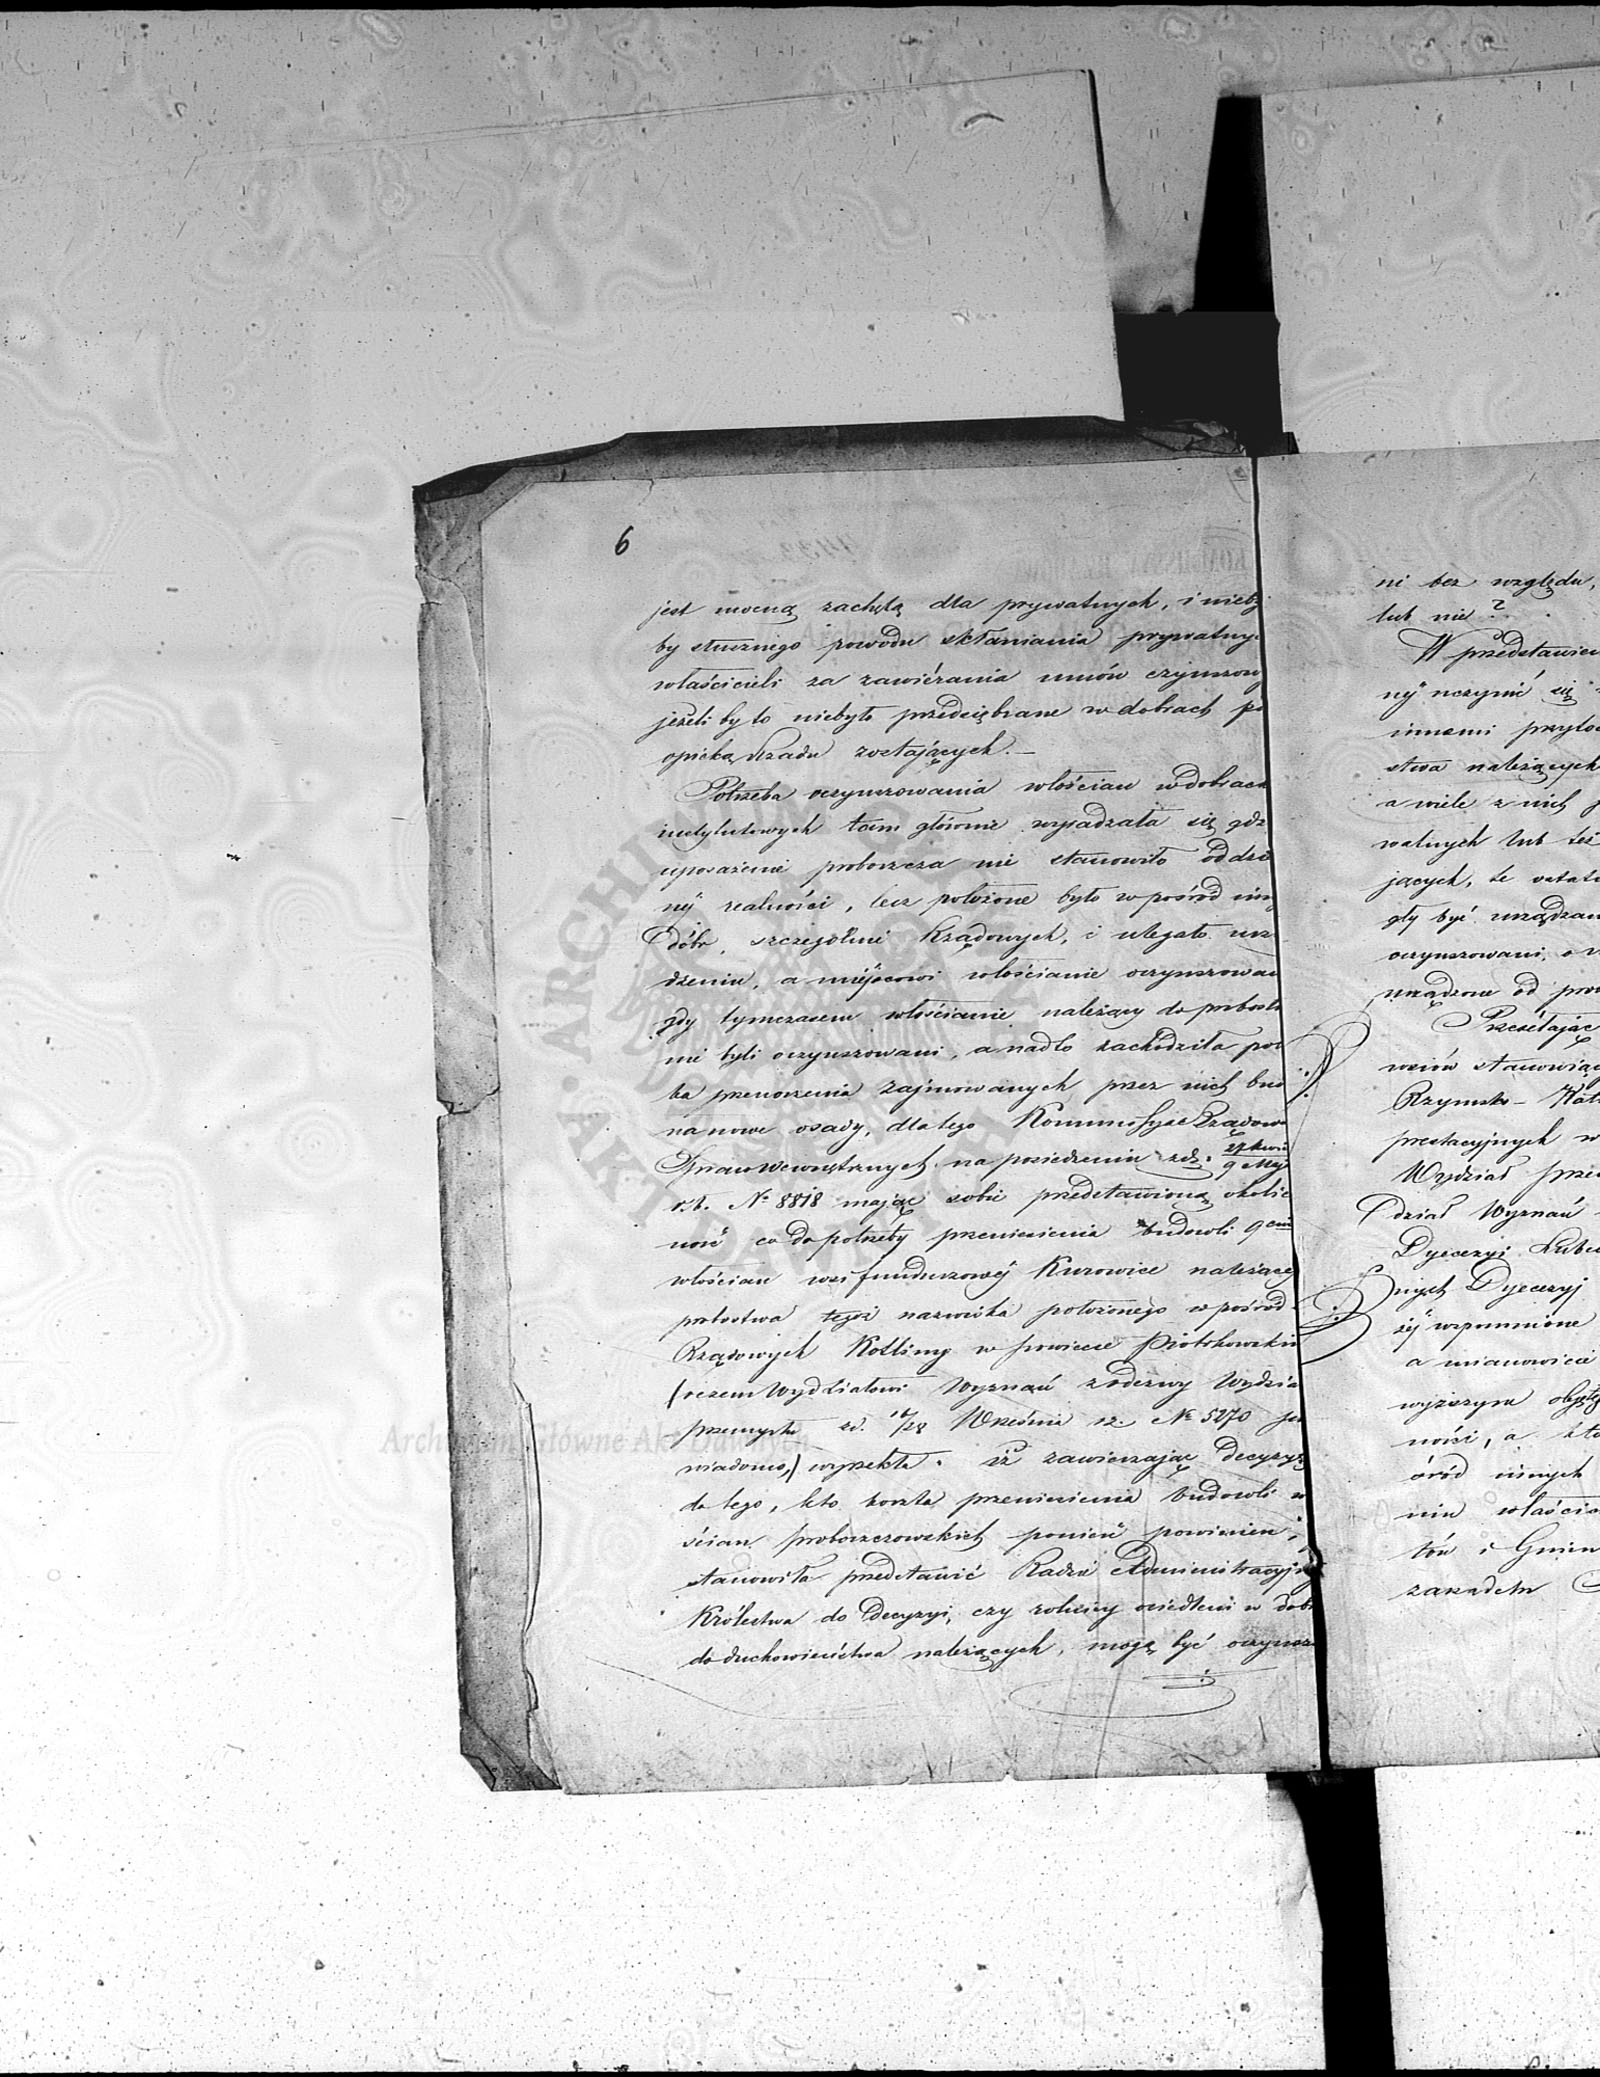 6
jest mocną zachętą dla prywatnych, i nieby
by słusznego powodu skłaniania prywatny
właścicieli za zawiérania umów czynszow
jeżeli by to niebyło przedsiębrane w dobrach po
opieką Rządu zostających. —
Potrzeba oczynszowania włościan w dobrach
instytutowych tam głównie wydarzała się gdz
uposażenie proboszcza nie stanowiło oddzi
néj realności, lecz położone było w pośród inn
dóbr, szczególnie Rządowych, i ulegało urz
dzeniu, a miejscowi włościanie oczynszowan
gdy tymczasem włościanie należący do probost
nie byli oczynszowani, a nadto zachodziła potr
ba przenoszenia zajmowanych przez nich bud
na nowe osady, dla tego Kommissyae Rządowa
Spraw Wewnętrznych na posiedzeniu z d. 27 Kwie 9 Maja
r. b. № 8818 mając sobie przedstawioną okolicz
ność co do potrzeby przeniesienia budowli 9ciu
włościan wsi funduszowéj Kurowice należącej
probostwa tegoż nazwiska położonego w pośród
Rządowych Kotliny w powiecie Piotrkowskim
(rezem Wydziałowi Wyznań z odezwy Wydzia
przemysłu z d. 16/28 Września r. z. № 5270 jest
wiadomo,) wyrzekła iż zawieszając decyzyą
do tego, kto koszta przeniesienia budowli w
ścian proboszczowskich ponieść powinien,
stanowiła przedstawić Radzie Administracyjn
Królestwa do Decyzyi, czy rolnicy osiedleni w dobr
do duchowieństwa należących, mogą być oczynszo
ni bez względu,
lub nie?
W przedstawien
néj uczynić się
innemi przyto
stwa należących
a wiele z nich
watnych lub też
jących, te ostat
gły być urządzan
oczynszowani, a w
urządzone od pow
Przesełając
wsiów stanowiąc
Rzymsko-Kat
prestacyjnych w
Wydział prze
dział Wyznań
Dyecezyi Lube
nych Dyecezyj
żéj wspomnione
a mianowicie
wyższym objęt
ności, a kto
śród innych
nia właścic
tów i Gmin
zasadzh